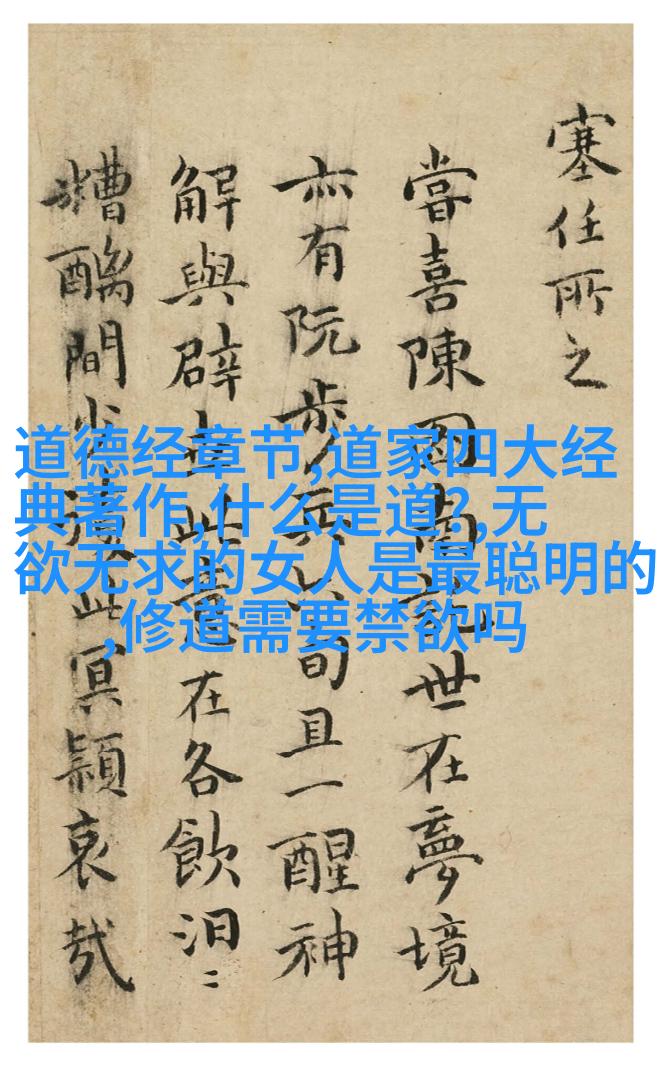 塞任所之
嘗喜陳圖南世在夢境
亦有阮步兵旬且一醒神
解與辟此意在各飲汩〻
糟醨間此冥穎哀哉
道德经章节,道家四大经
典著作,什么是道?,无
欲无求的女人是最聪明的
,修道需要禁欲吗